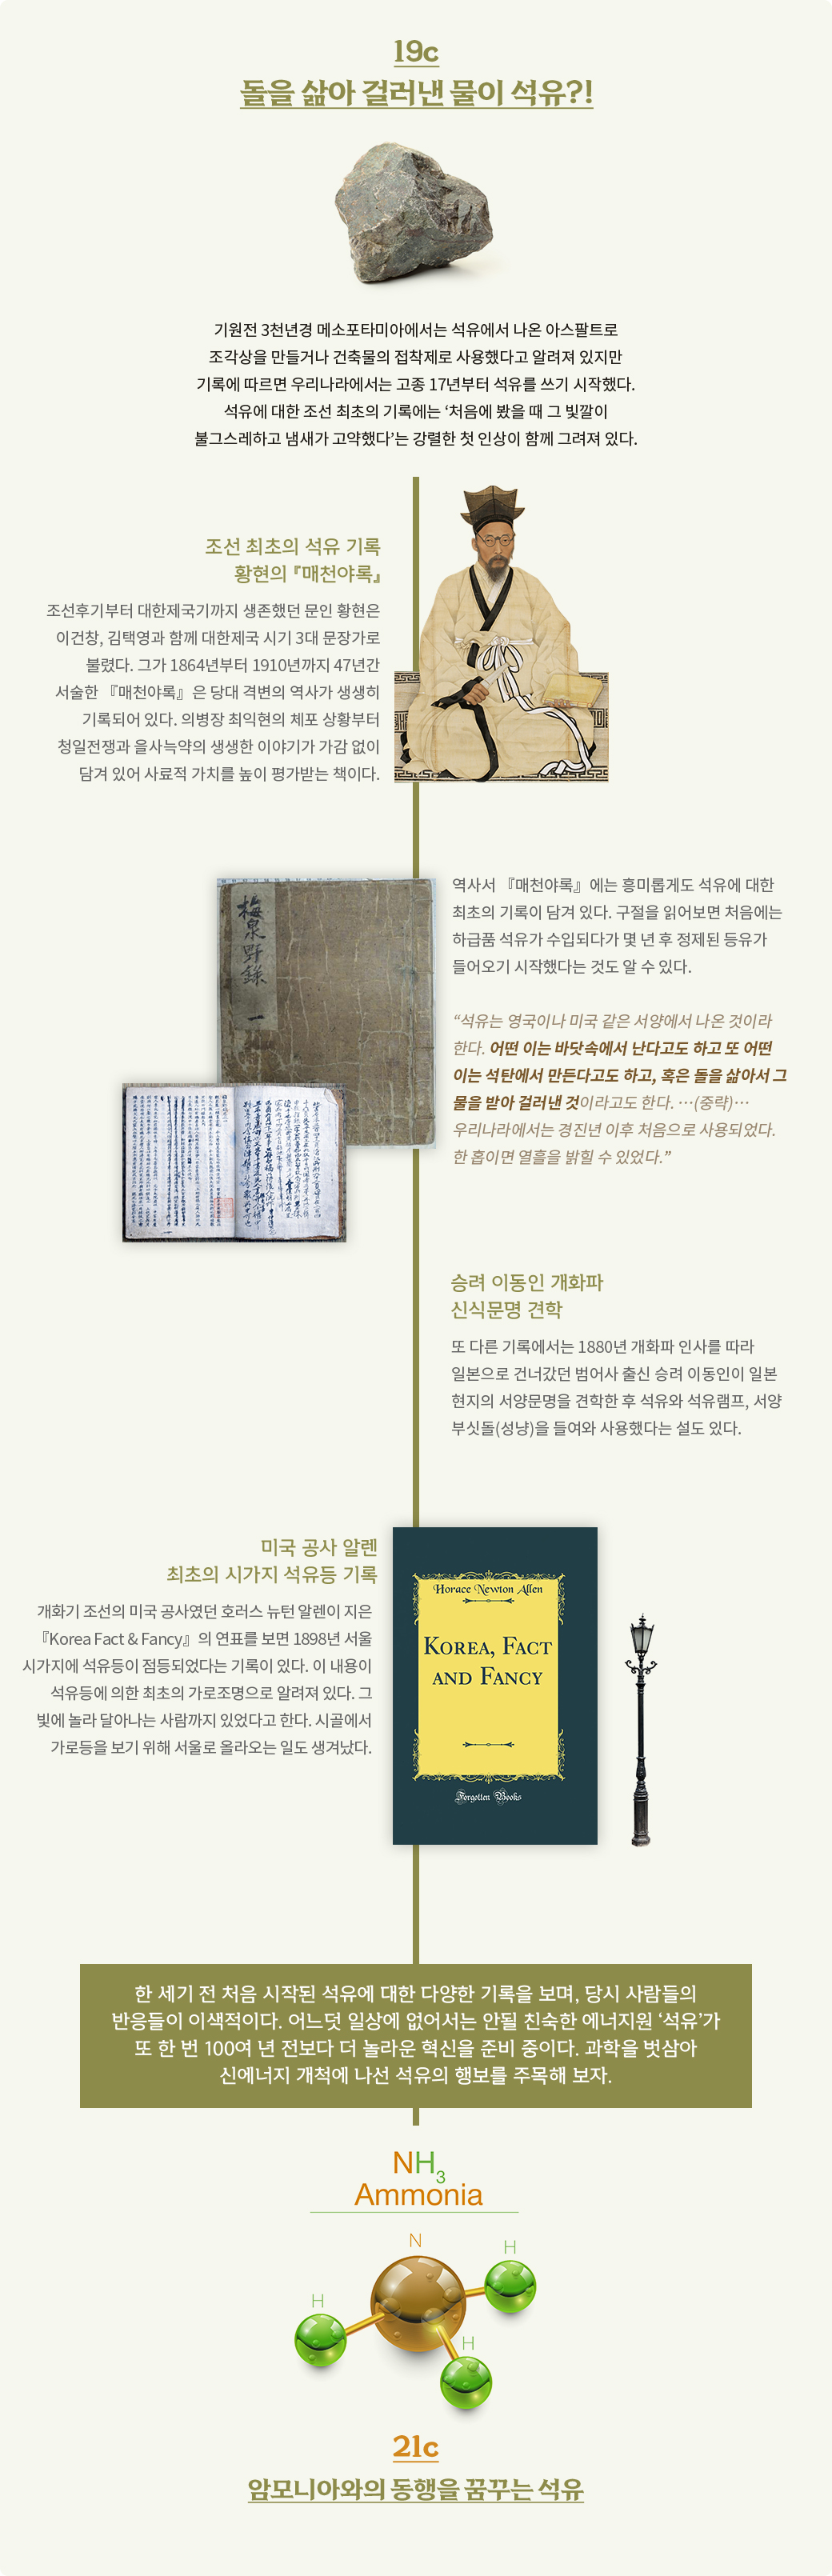 19c
돌을 삶아 걸러낸 물이 석유?!
기원전 3천년경 메소포타미아에서는 석유에서 나온 아스팔트로
조각상을 만들거나 건축물의 접착제로 사용했다고 알려져 있지만
기록에 따르면 우리나라에서는 고종 17년부터 석유를 쓰기 시작했다.
석유에 대한 조선 최초의 기록에는 ‘처음에 봤을 때 그 빛깔이
불그스레하고 냄새가 고약했다’는 강렬한 첫 인상이 함께 그려져 있다.
조선 최초의 석유 기록
황현의 『매천야록』
조선후기부터 대한제국기까지 생존했던 문인 황현은
이건창, 김택영과 함께 대한제국 시기 3대 문장가로
불렸다. 그가 1864년부터 1910년까지 47년간
서술한 『매천야록』은 당대 격변의 역사가 생생히
기록되어 있다. 의병장 최익현의 체포 상황부터
청일전쟁과 을사늑약의 생생한 이야기가 가감 없이
담겨 있어 사료적 가치를 높이 평가받는 책이다.
梅泉野錄 一
역사서 『매천야록』에는 흥미롭게도 석유에 대한
최초의 기록이 담겨 있다. 구절을 읽어보면 처음에는
하급품 석유가 수입되다가 몇 년 후 정제된 등유가
들어오기 시작했다는 것도 알 수 있다.
“석유는 영국이나 미국 같은 서양에서 나온 것이라
한다. 어떤 이는 바닷속에서 난다고도 하고 또 어떤
이는 석탄에서 만든다고도 하고, 혹은 돌을 삶아서 그
물을 받아 걸러낸 것이라고도 한다. …(중략)…
우리나라에서는 경진년 이후 처음으로 사용되었다.
한 홉이면 열흘을 밝힐 수 있었다.”
승려 이동인 개화파
신식문명 견학
또 다른 기록에서는 1880년 개화파 인사를 따라
일본으로 건너갔던 범어사 출신 승려 이동인이 일본
현지의 서양문명을 견학한 후 석유와 석유램프, 서양
부싯돌(성냥)을 들여와 사용했다는 설도 있다.
미국 공사 알렌
최초의 시가지 석유등 기록
개화기 조선의 미국 공사였던 호러스 뉴턴 알렌이 지은
『Korea Fact & Fancy』의 연표를 보면 1898년 서울
시가지에 석유등이 점등되었다는 기록이 있다. 이 내용이
석유등에 의한 최초의 가로조명으로 알려져 있다. 그
빛에 놀라 달아나는 사람까지 있었다고 한다. 시골에서
가로등을 보기 위해 서울로 올라오는 일도 생겨났다.
Horace Newton Allen
KOREA, FACT
AND FANCY
Forgotten Books
한 세기 전 처음 시작된 석유에 대한 다양한 기록을 보며, 당시 사람들의
반응들이 이색적이다. 어느덧 일상에 없어서는 안될 친숙한 에너지원 ‘석유’가
또 한 번 100여 년 전보다 더 놀라운 혁신을 준비 중이다. 과학을 벗삼아
신에너지 개척에 나선 석유의 행보를 주목해 보자.
NH3
Ammonia
N
H
H
H
21c
암모니아와의 동행을 꿈꾸는 석유